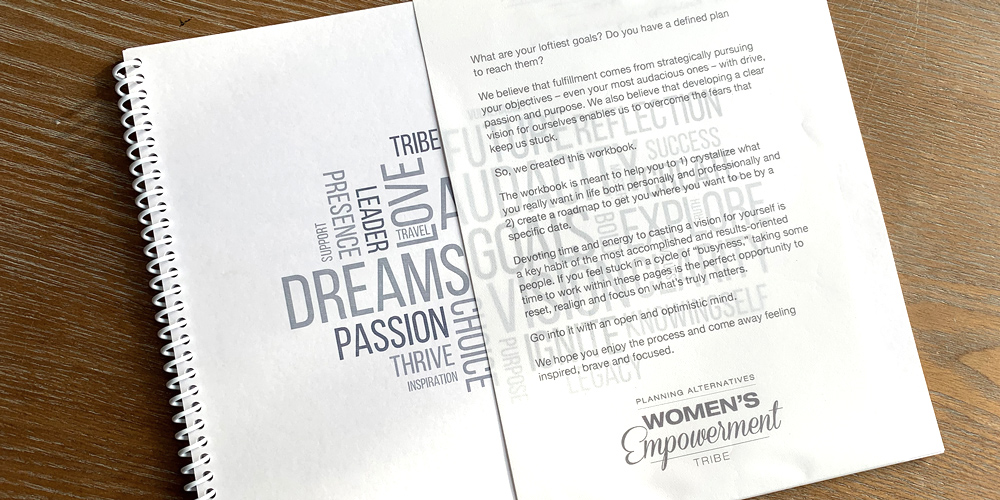 TRIBE
LOVE
PRESENCE
LEADER
SUPPORT
TRAVEL
DREAMS
PASSION
CHOICE
THRIVE
INSPIRATION
FUTURE REFLECTION
SUCCESS
GOALS
BOLD
EXPLORE
VISION
IGNITE KNOWING SELF
PURPOSE
LEGACY
What are your loftiest goals? Do you have a defined plan
to reach them?
We believe that fulfillment comes from strategically pursuing
your objectives – even your most audacious ones – with drive,
passion and purpose. We also believe that developing a clear
vision for ourselves enables us to overcome the fears that
keep us stuck.
So, we created this workbook.
The workbook is meant to help you to 1) crystalize what
you really want in life both personally and professionally and
2) create a roadmap to get you where you want to be by a
specific date.
Devoting time and energy to casting a vision for yourself is
a key habit of the most accomplished and results-oriented
people. If you feel stuck in a cycle of “busyness,” taking some
time to work within these pages is the perfect opportunity to
reset, realign and focus on what’s truly matters.
Go into it with an open and optimistic mind.
We hope you enjoy the process and come away feeling
inspired, brave and focused.
PLANNING ALTERNATIVES
WOMEN’S
Empowerment
TRIBE